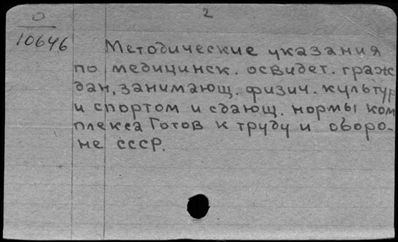 2
О
10646
Методические указания
по медицинск. освидет. граж
дан, занимающ. физич. культур
и спортом и сдающ. нормы ком
плекса Готов к труду и оборо-
не СССР.